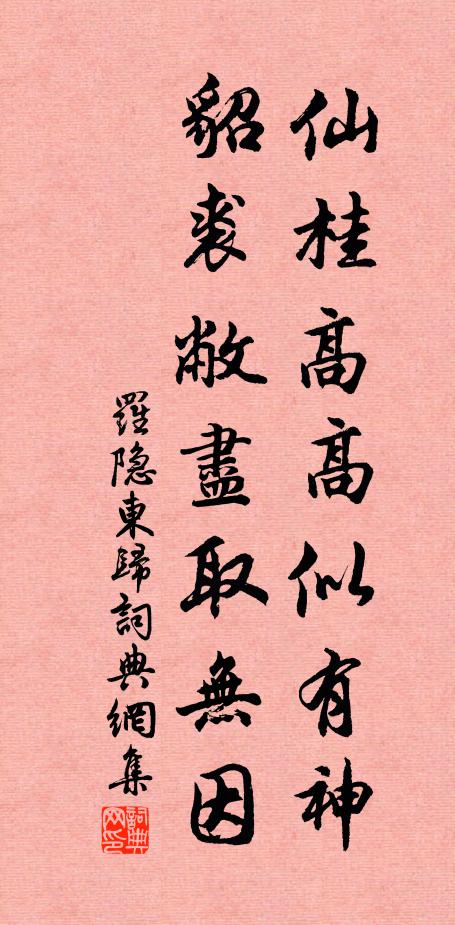 仙桂高高似有神
貂裘敝盡取無因
羅隐東歸詞典網集
詞典网印